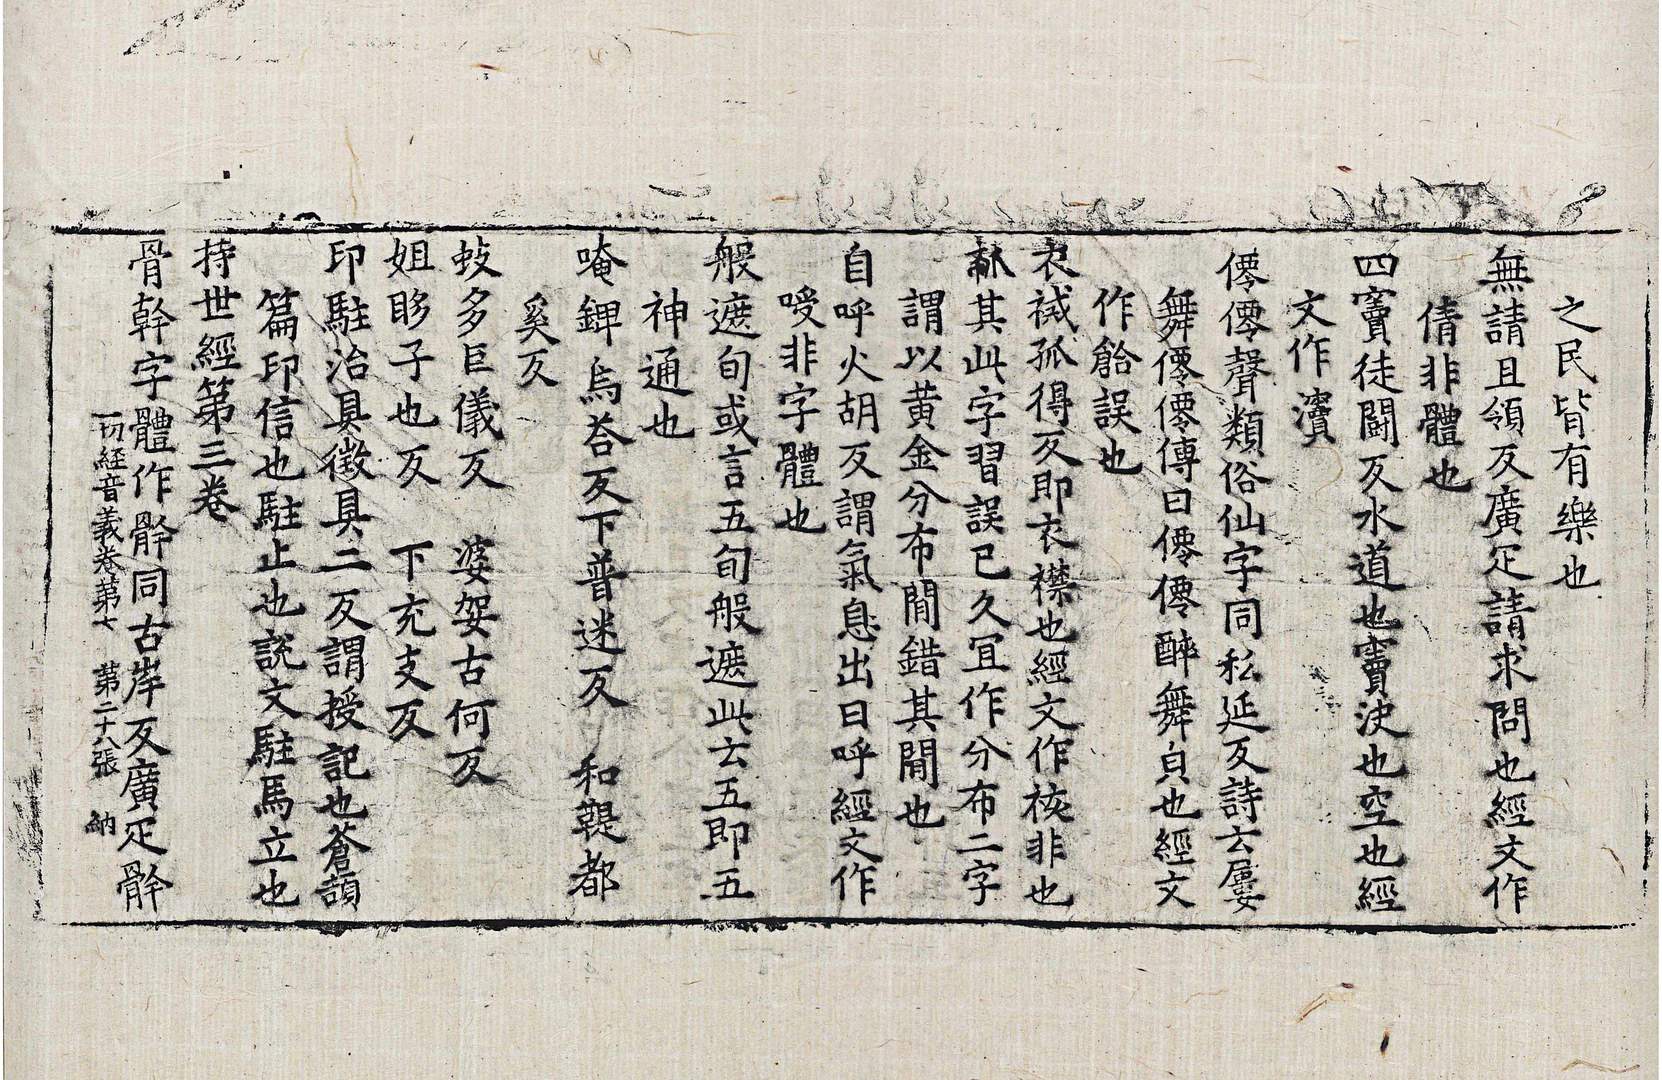 之民皆有樂也
無請且領反廣疋請求問也經文作
倩非體也
四竇徒鬪反水道也竇決也空也經
文作瀆
僊僊聲類俗仙字同私延反詩云屢
舞僊僊傳曰僊僊醉舞皃也經文
作飴誤也
衣祴孤得反即衣襟也經文作祴非也
其此字習誤已久宜作分布二字
謂以黃金分布閒錯其閒也
自呼火胡反謂氣息出曰呼經文作
嚘非字體也
般遮旬或言五旬般遮此云五即五
神通也
唵鉀烏荅反下普迷反 和鞮都
奚反
蚑多巨儀反 婆㚙古何反
姐眵子也反 下充支反
印駐治具徵具二反謂授記也蒼頡
篇印信也駐止也說文駐馬立也
持世經第三卷
骨幹字體作骭同古岸反廣疋骭
一切經音義卷苐七 第二十八張 納